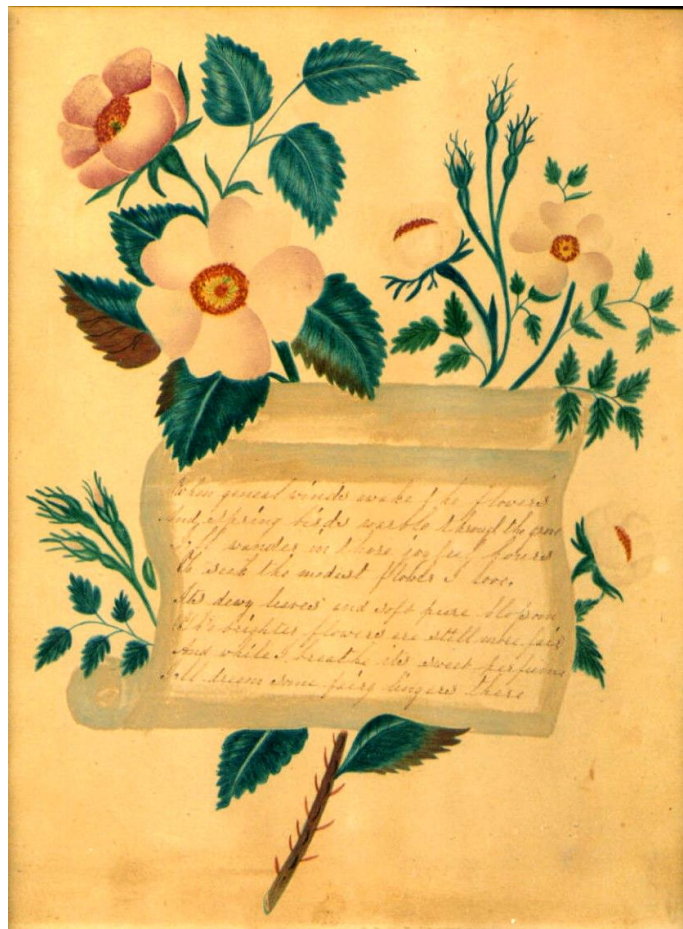 When genial winds awake the flowers
And spring birds warble through the grove
I'll wander in those joyful
To seek the modest flower I love.
Its dewy leaves and soft pure blossom
brighter flowers are still more fair
And while I breathe its sweet perfume
I'll dream some fairy lingers there